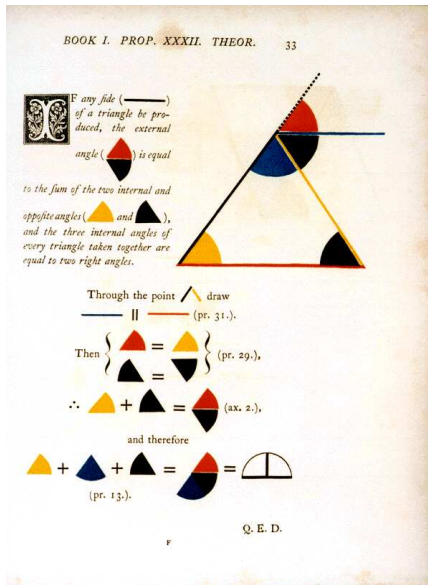 BOOK I. PROP. XXXII. THEOR. 33
IF any ſide ( )
of a triangle be pro-
duced, the external
angle ( ) is equal
to the ſum of the two internal and
oppoſite angles ( and ),
and the three internal angles of
every triangle taken together are
equal to two right angles.
Through the point draw
|| (pr. 31.).
Then { = } (pr. 29.),
=
∴ + = (ax. 2.),
and therefore
+ + = =
(pr. 13.).
Q. E. D.
F